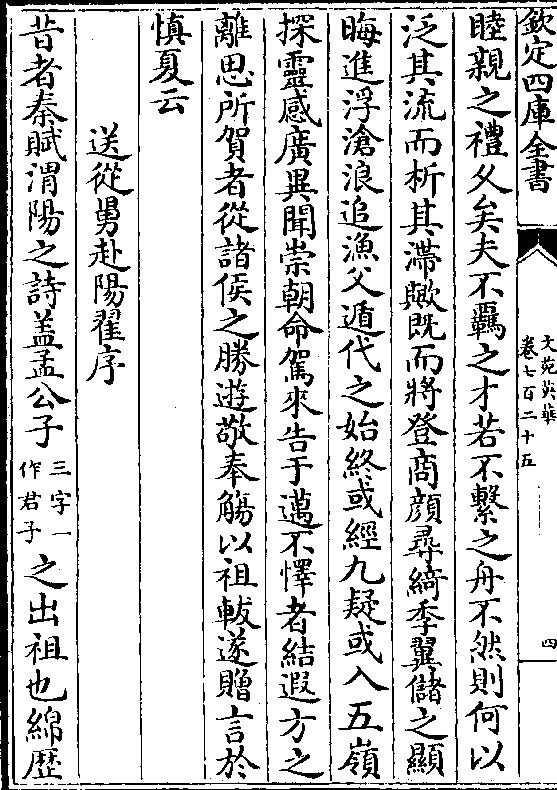 欽定四庫全書
文苑英華
卷七百二十五
四
睦親之禮父矣夫不羈之才若不繫之舟不然則何以
泛其流而析其滯歟既而將登商顔尋綺季翼儲之顯
晦進浮滄浪追漁父遁代之始終或經九疑或入五嶺
探靈感廣異聞崇朝命駕來告于邁不懌者結遐方之
離思所賀者從諸侯之勝遊敬奉觴以祖軷遂贈言於
慎夏云
送從舅赴陽翟序
昔者秦賦渭陽之詩盖孟公子三字一作君子之出祖也綿歴